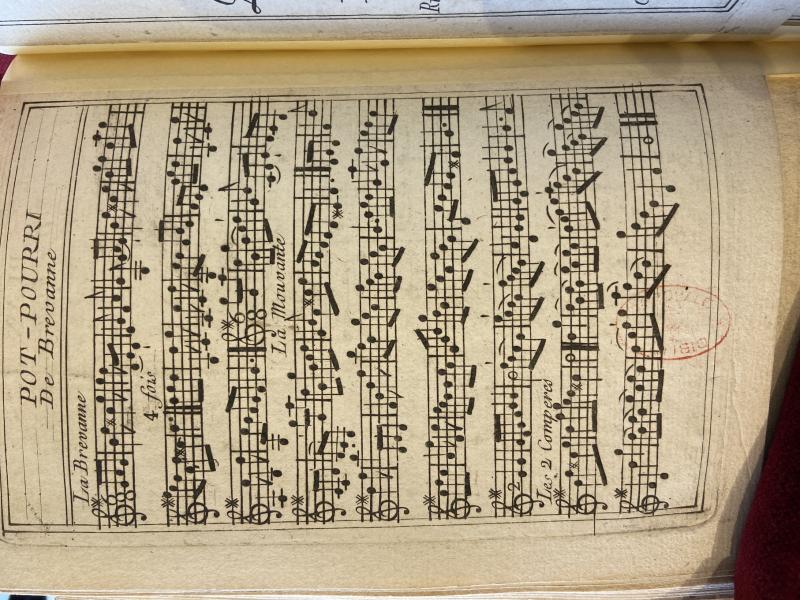 POT-POURRI
De Brevanne
La Brevanne
4. fois
6
8
La Mouvante
2
Les 2 Comperes